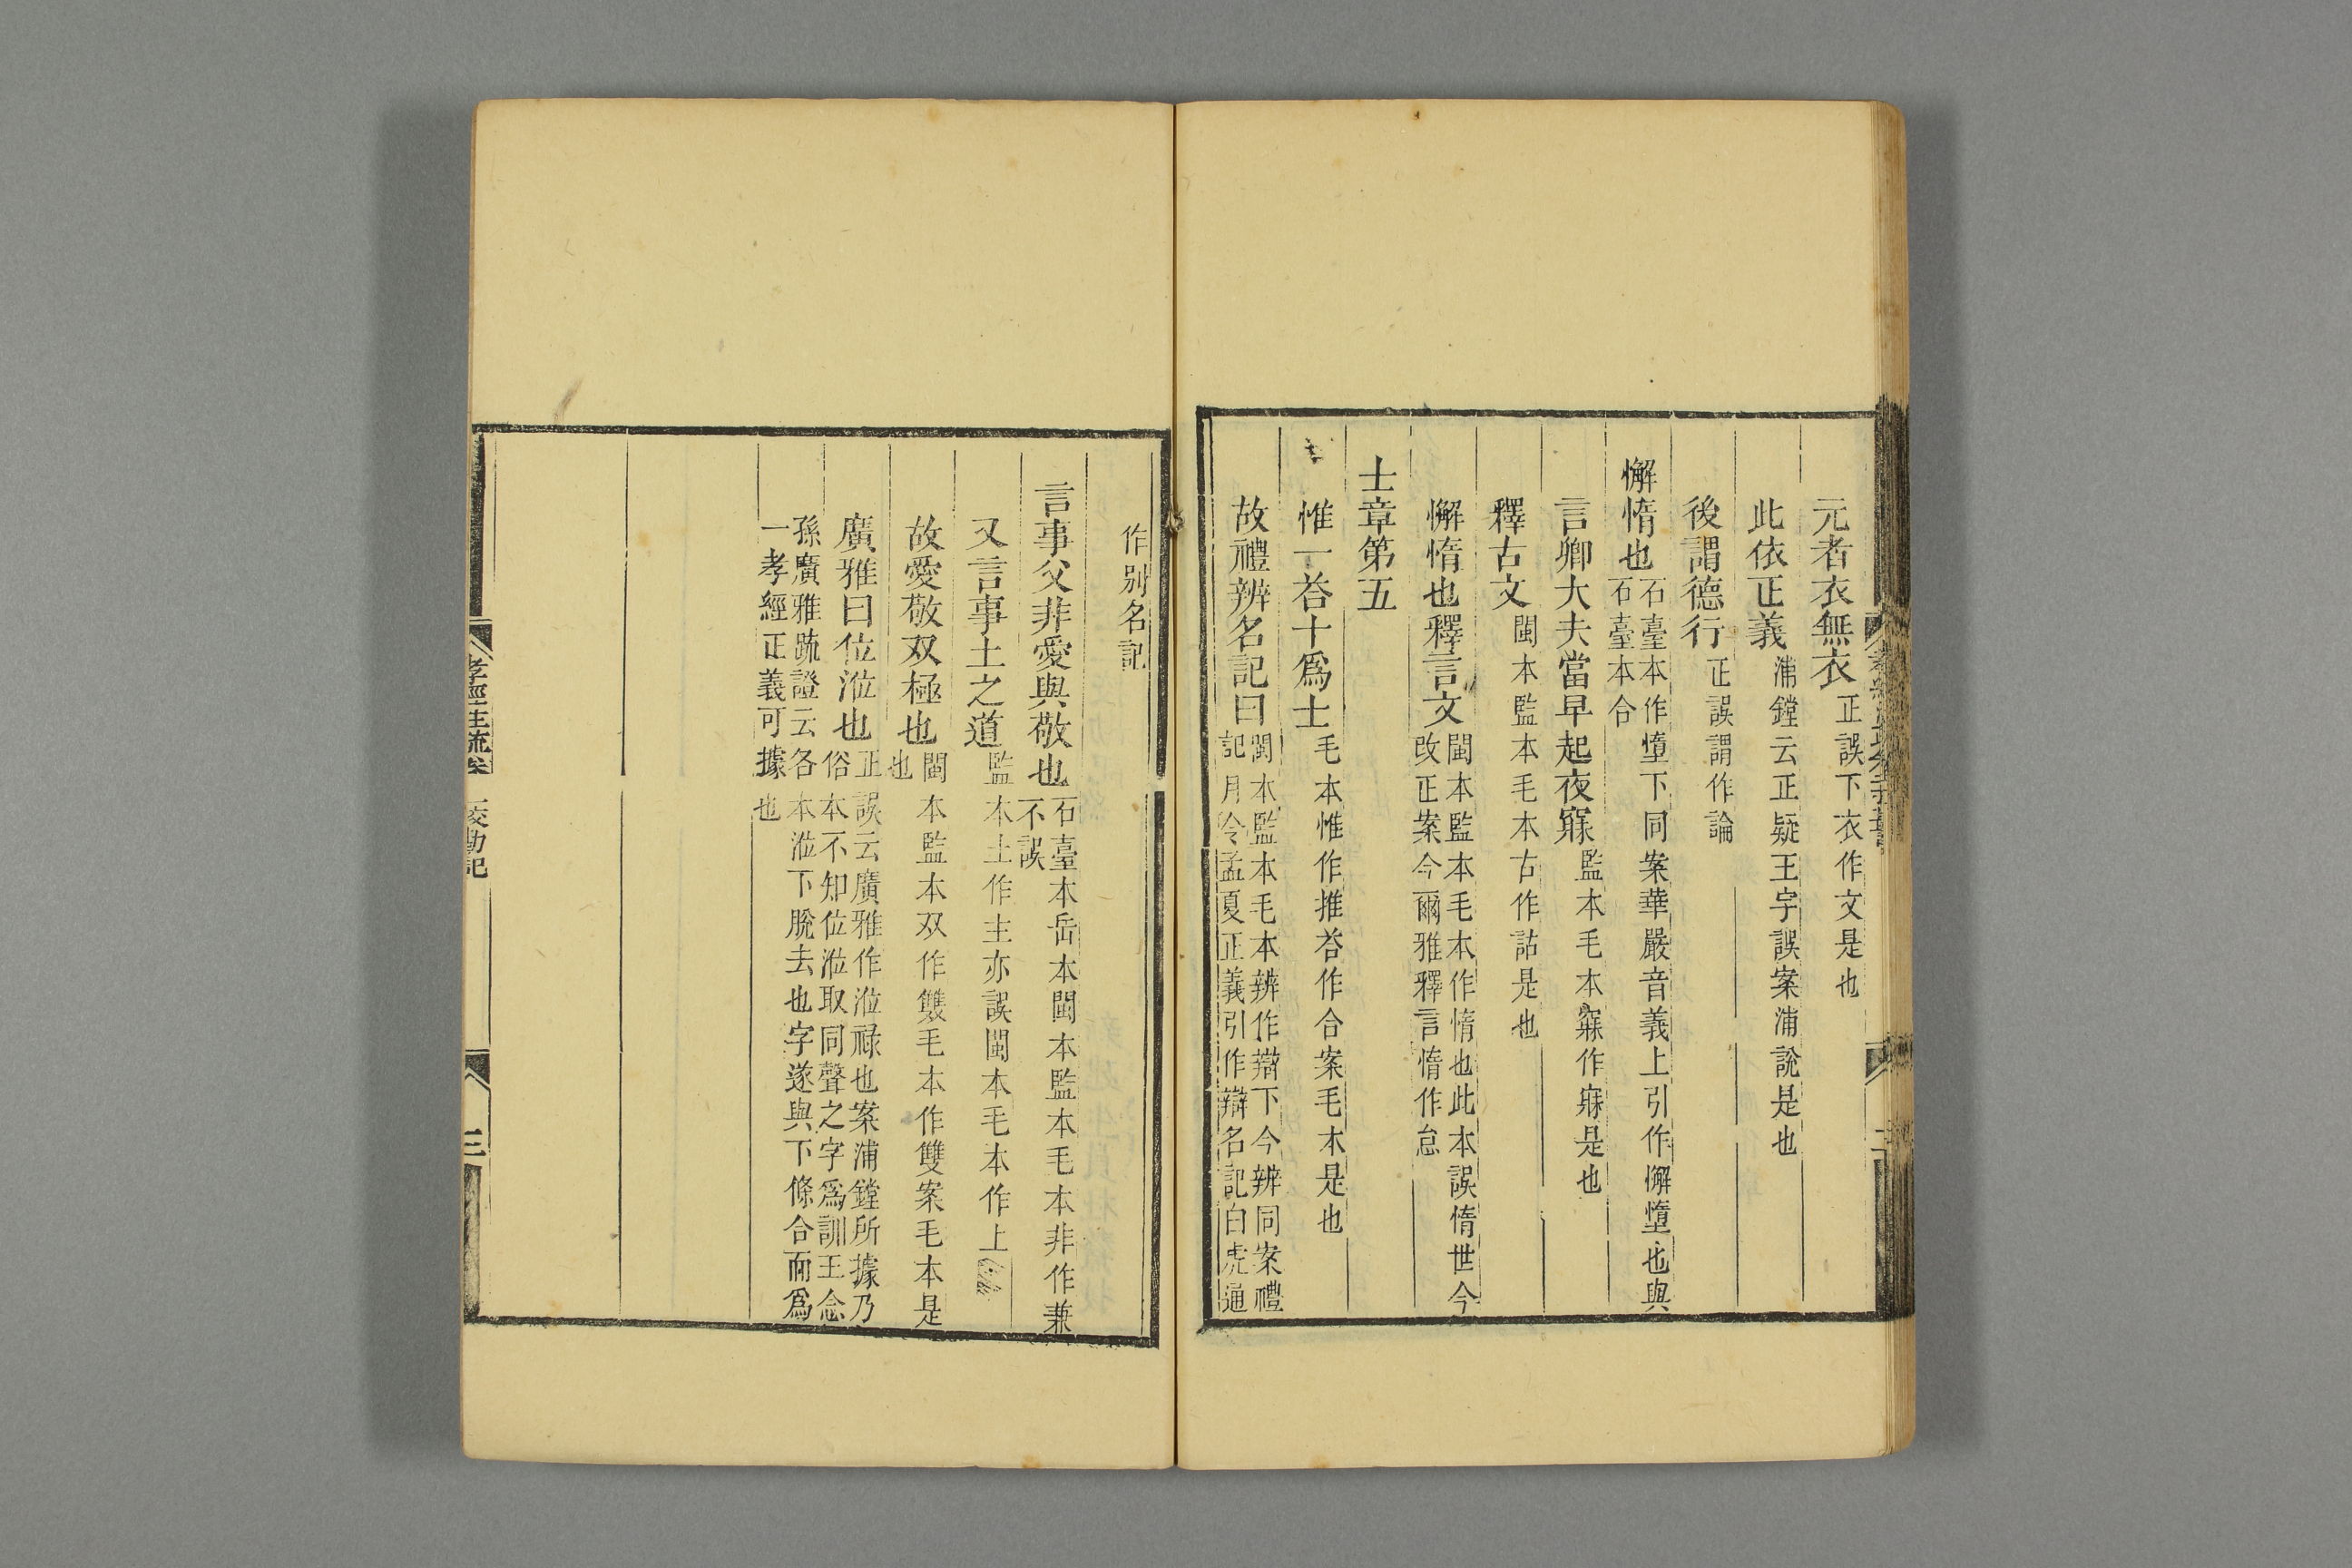 元者衣無衣 正誤下衣作文是也
此依正義 浦鏜云正疑王字誤案浦說是也
後謂德行 正誤謂作論
懈惰也 石臺本作惰下同案華嚴音義上引作懈墮也與
石臺本合
言卿大夫當早起夜寐 監本毛本寐作寐是也
釋古文 閩本監本毛本古作詁是也
懈惰也釋言文 閩本監本毛本作惰也此本誤惰世今
改正案今爾雅釋言惰作怠
士章第五
惟一荅十爲士 毛本惟作推荅作合案毛本是也
故禮辨名記曰 閩本監本毛本辨作辯下今辨同案禮
記月令孟夏正義引作辯名記白虎通
作別名記
言事父非愛與敬也 石臺本岳本閩本監本毛本非作兼
不誤
又言事土之道 監本土作主亦誤閩本毛本作上
故愛敬双極也 閩本監本双作雙毛本作雙案毛本是
也
廣雅曰位涖也 正誤云廣雅作涖祿也案浦鏜所據乃
俗本不知位涖取同聲之字爲訓王念
孫廣雅疏證云各本涖下脫去也字遂與下條合而爲
一孝經正義可據也
孝經注疏卷二校勘記
三